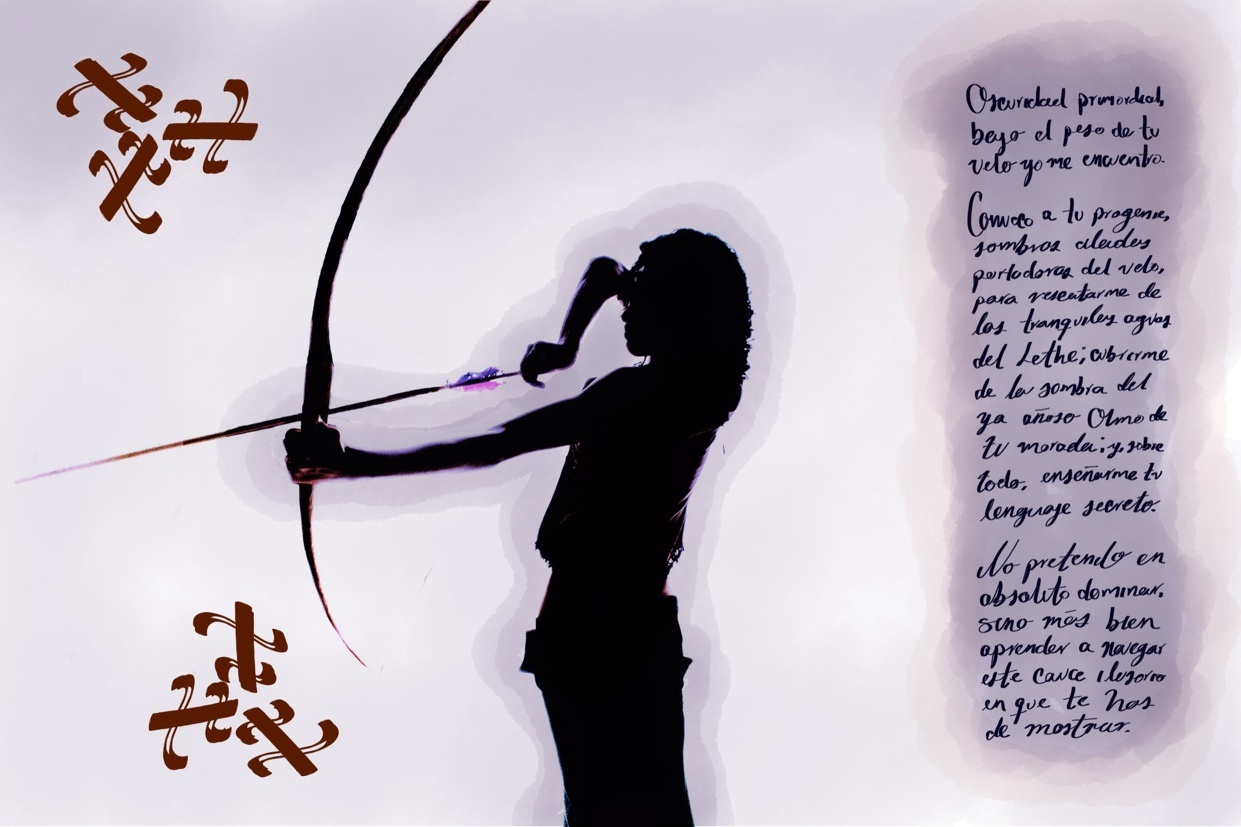 Oscuridad primordial,
bajo el peso de tu
velo yo me encuentro.
Convoco a tu progenie,
sombras aladas
portadoras del velo,
para rescatarme de
las tranquilas aguas
del Lethe; cubrirme
de la sombra del
ya añoso Olmo de
tu morada; y, sobre
todo, enseñarme tu
lenguaje secreto.
No pretendo en
absoluto dominar,
sino más bien
aprender a navegar
este cauce ilusorio
en que te has
de mostrar.